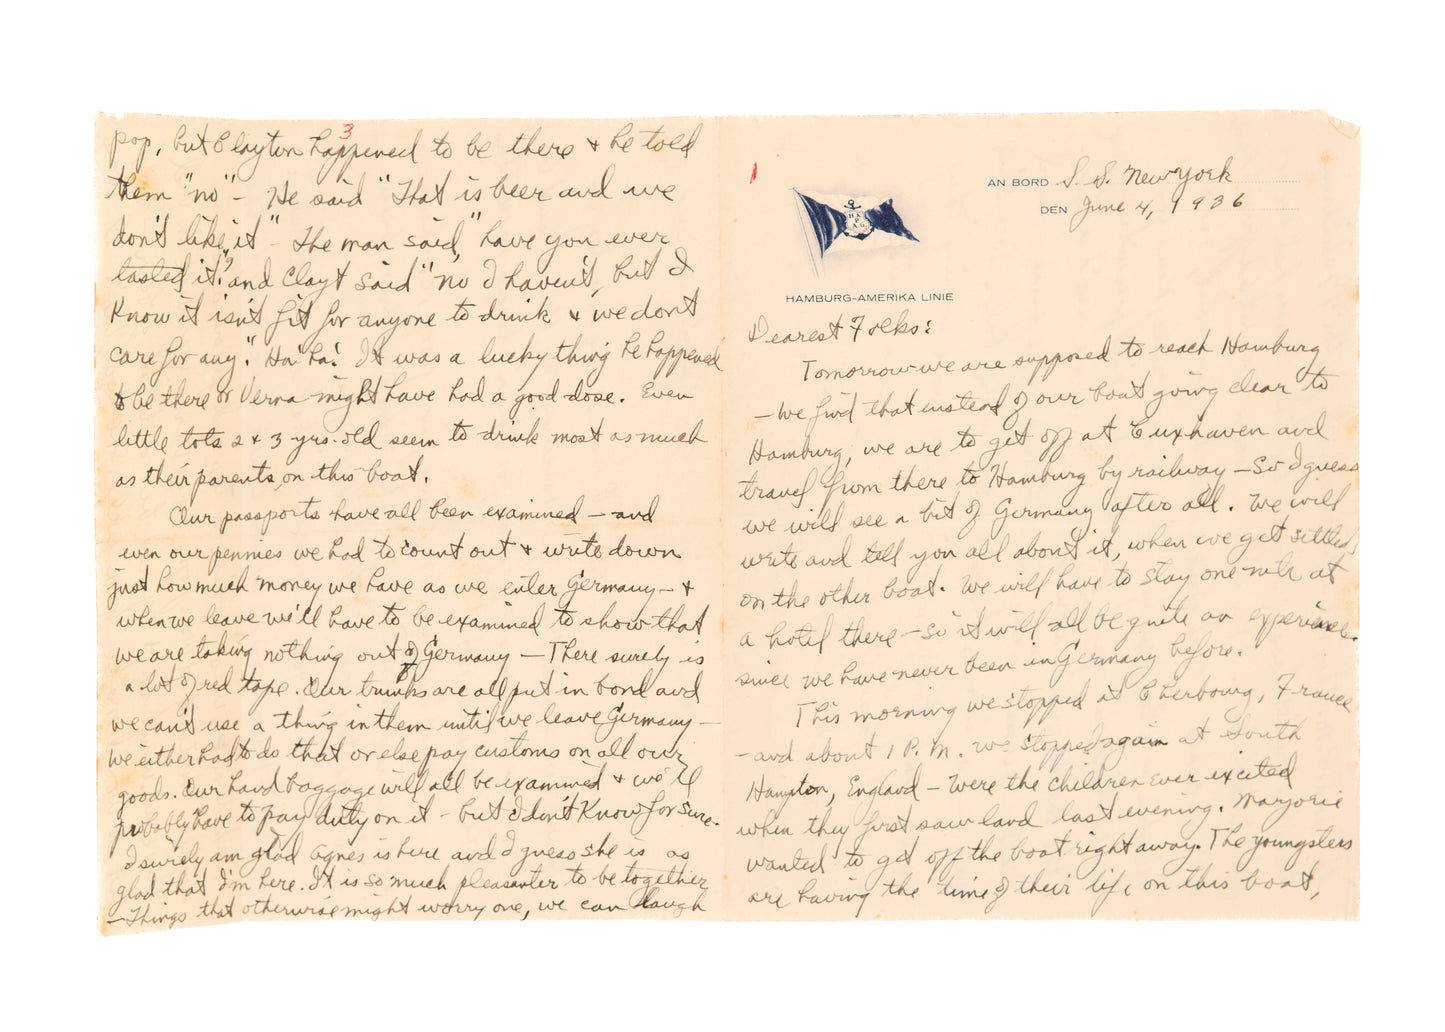 3
pop, but Clayton happened to be there & he told
them "no" - He said "That is beer and we
don't like it" - The man said, "have you ever
tasted it?" and Clayt said "no I haven't, but I
know it isn't fit for anyone to drink & we don't
care for any." Ha! ha! It was a lucky thing he happened
to be there or Verna might have had a good dose. Even
little tots 2 & 3 yrs. old seem to drink most as much
as their parents, on this boat.
Our passports have all been examined - and
even our pennies we had to count out & write down
just how much money we have as we enter Germany - &
when we leave we'll have to be examined to show that
we are taking nothing out of Germany - There surely is
a lot of red tape. Our trunks are all put in bond and
we can't use a thing in them until we leave Germany -
we either had to do that or else pay customs on all our
goods. Our hand baggage will all be examined & we'll
probably have to pay duty on it - but I don't know for sure.
I surely am glad Agnes is here and I guess she is as
glad that I'm here. It is so much pleasanter to be together
- Things that otherwise might worry one, we can laugh
1
HAPAG
AN BORD S. S. New York
DEN June 4, 1936
HAMBURG-AMERIKA LINIE
Dearest Folks:
Tomorrow we are supposed to reach Hamburg
- We find that instead of our boat going clear to
Hamburg, we are to get off at Cuxhaven and
travel from there to Hamburg by railway - So I guess
we will see a bit of Germany after all. We will
write and tell you all about it, when we get settled
on the other boat. We will have to stay one nite at
a hotel there - so it will all be quite an experience.
since we have never been in Germany before.
This morning we stopped at Cherbourg, France
- and about 1 P.M. we stopped again at South
Hampton, England - Were the children ever excited
when they first saw land last evening. Marjorie
wanted to get off the boat right away. The youngsters
are having the time of their life on this boat,